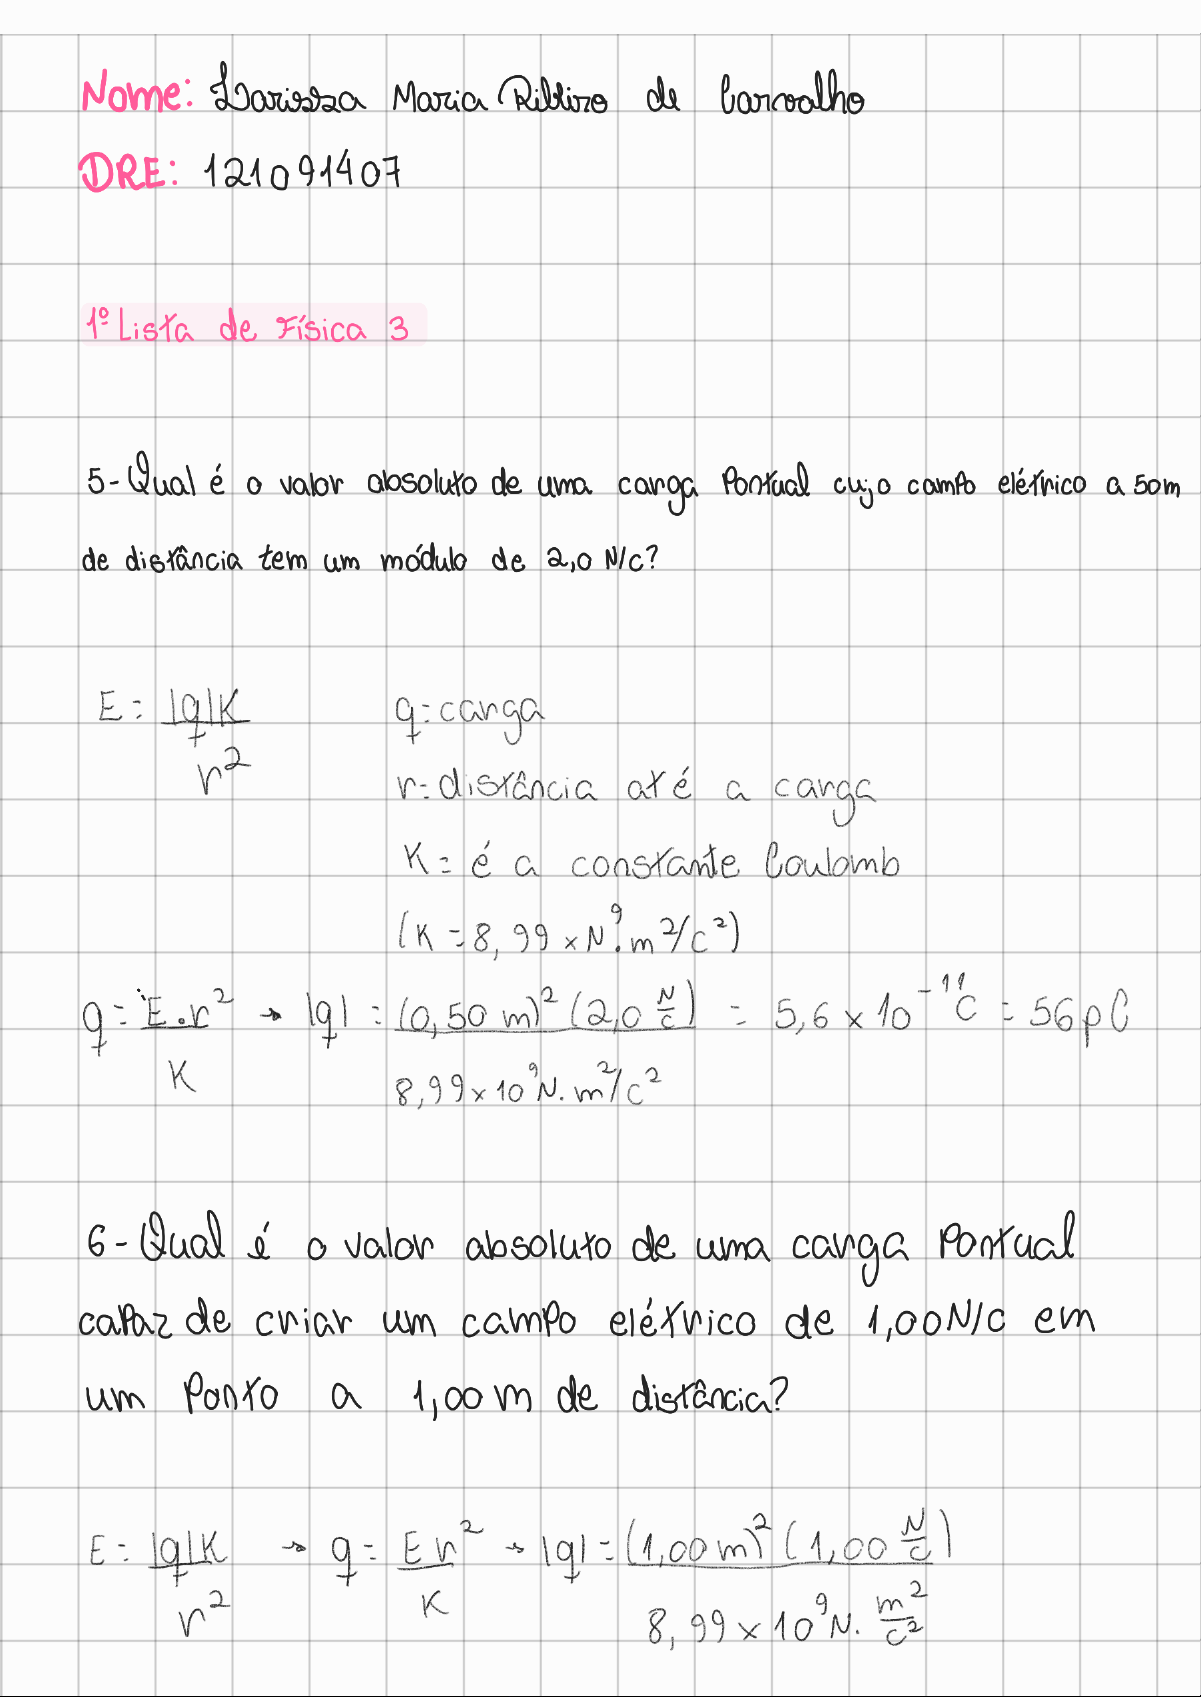 Nome: Larissa Maria Ribeiro de Carvalho
DRE: 121091407
1º Lista de Física 3
5-Qual é o valor absoluto de uma carga Pontual cujo campo elétrico a 50m
de distância tem um módulo de 2,0 N/c?
E = |q|K / r² q=carga
r=distância até a carga
K= é a constante Coulomb
(K = 8,99 × N⁹. m²/c²)
q = E.r² / K → |q| = (0,50 m)² (2,0 N/c) / 8,99×10⁹N.m²/c² = 5,6 × 10⁻¹¹C = 56pC
6-Qual é o valor absoluto de uma carga Pontual
capaz de criar um campo elétrico de 1,00N/c em
um Ponto a 1,00m de distância?
E = |q|K / r² → q = E r² / K → |q| = (1,00m)² (1,00 N/c) / 8,99×10⁹N. m²/c²